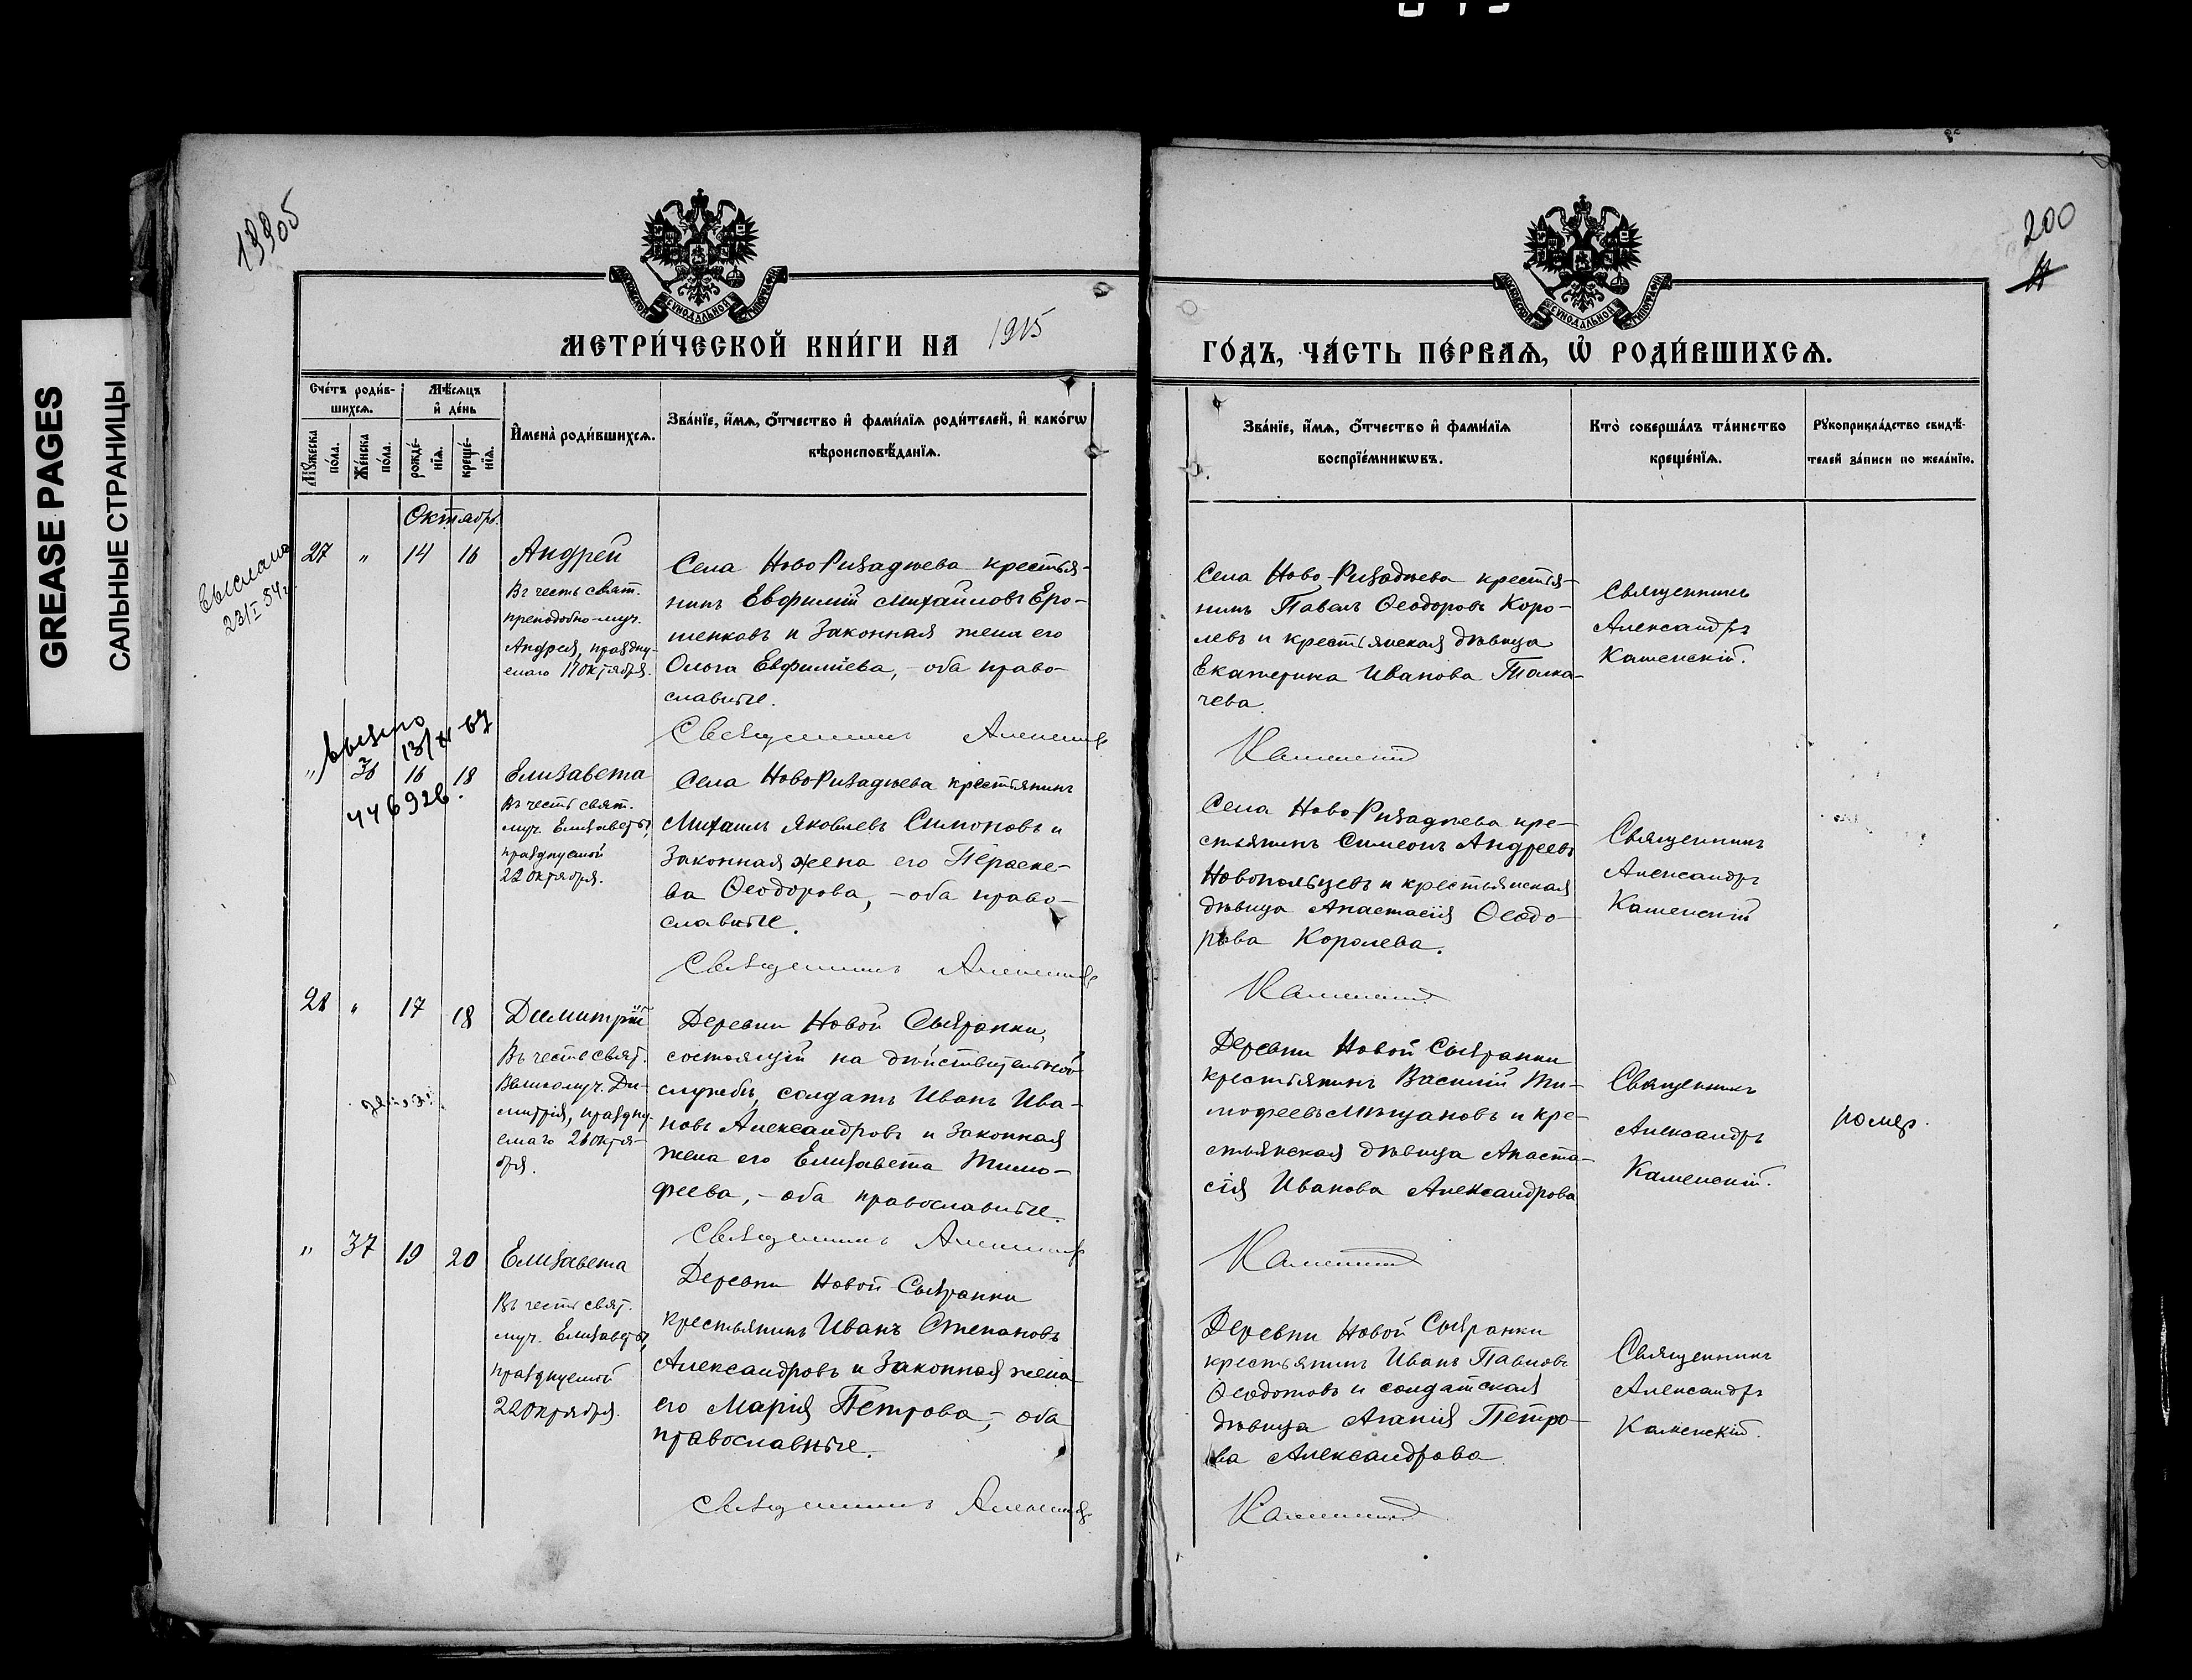 GREASE PAGES
САЛЬНЫЕ СТРАНИЦЫ
200
МЕТРИ́ЧЕСКОЙ КНИ́ГИ НА 1915
ГО́ДЪ, ЧА́СТЬ ПЕ́РВАЯ, Ѡ҆ РОДИ́ВШИХСЯ.
Сче́тъ роди́в-
шихся.
Мѣ́сяцъ
и҆ де́нь
Мꙋ́жеска
по́ла.
Же́нска
по́ла.
рожде́-
нїя.
креще́-
нїя.
И҆мена̀ роди́вшихся.
Зва́нїе, и҆́мя, ѻ҆́тчество и҆ фами́лїя роди́телей, и҆ како́гѡ
вѣроисповѣ́данїя.
Зва́нїе, и҆́мя, ѻ҆́тчество и҆ фами́лїя
воспрїе́мникѡвъ.
Кто̀ соверша́лъ та́инство
креще́нїя.
Рꙋкоприкла́дство свидѣ́-
телей за́писи по жела́нїю.
Октябрь
выслано
23/I 54 г.
27 " 14 16
Андрей
Въ честь свят.
преподобно-муч.
Андрея, праздну-
емаго 17 октября.
Села Ново Ризадѣева крестья-
нинъ Евфимій Михайловъ Еро-
шенковъ и законная жена его
Ольга Евфиміева, – оба право-
славные.
Священникъ Александръ
Села Ново-Ризадѣева крестья-
нинъ Павелъ Ѳеодоровъ Коро-
левъ и крестьянская дѣвица
Екатерина Иванова Толка-
чева.
Каменскій
Священникъ
Александръ
Каменскій.
" 36 16 18
446926.
Елизавета
Въ честь свят.
муч. Елизаветы,
празднуемой
22 октября.
Села Ново Ризадѣева крестьянинъ
Михаилъ Яковлевъ Симоновъ и
законная жена его Параске-
ва Ѳеодорова, – оба право-
славные.
Священникъ Александръ
Села Ново Ризадѣева кре-
стьянинъ Симеонъ Андреевъ
Новопольцевъ и крестьянская
дѣвица Анастасія Ѳеодо-
рова Королева.
Каменскій
Священникъ
Александръ
Каменскій
28 " 17 18
Димитрій
Въ честь свят.
Великомуч. Ди-
митрія, праздну-
емаго 26 октя-
бря.
Деревни Новой Сызранки,
состоящій на дѣйствительной
службѣ, солдатъ Иванъ Ива-
новъ Александровъ и законная
жена его Елизавета Тимо-
феева, – оба православные.
Священникъ Александръ
Деревни Новой Сызранки
крестьянинъ Василій Ти-
мофеевъ Мѣщановъ и кре-
стьянская дѣвица Анаста-
сія Иванова Александрова
Каменскій
Священникъ
Александръ
Каменскій.
помер.
" 37 19 20
Елизавета
Въ честь свят.
муч. Елизаветы,
празднуемой
22 октября.
Деревни Новой Сызранки
крестьянинъ Иванъ Степановъ
Александровъ и законная жена
его Марія Петрова, – оба
православные.
Священникъ Александръ
Деревни Новой Сызранки
крестьянинъ Иванъ Павловъ
Ѳеодотовъ и солдатская
дѣвица Агапія Петро-
ва Александрова
Каменскій
Священникъ
Александръ
Каменскій.